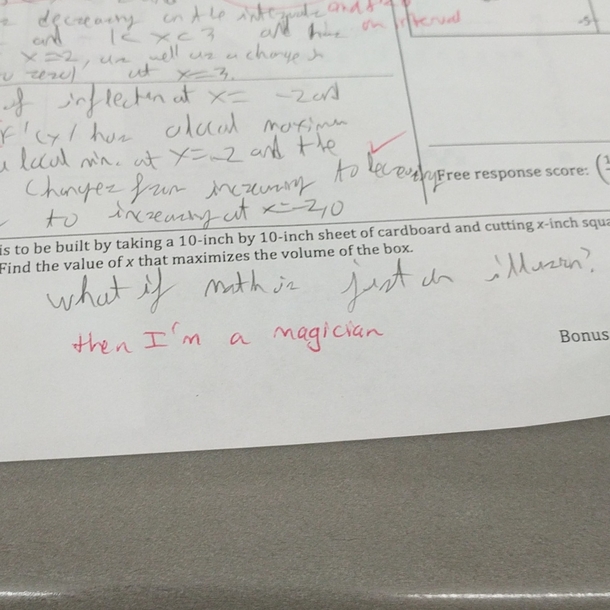 decreasing on the
on interval
and 1 < x < 3 and has
x=2, as well as a change
at x=3.
-5
of inflection at x= -2 and
f'(x) has a local maximum
a local min. at x=-2 and the
changes from increasing to
Free response score: (
to increasing at x=-2,0
is to be built by taking a 10-inch by 10-inch sheet of cardboard and cutting x-inch squa
Find the value of x that maximizes the volume of the box.
what if math is just an illusion?
then I'm a magician
Bonus